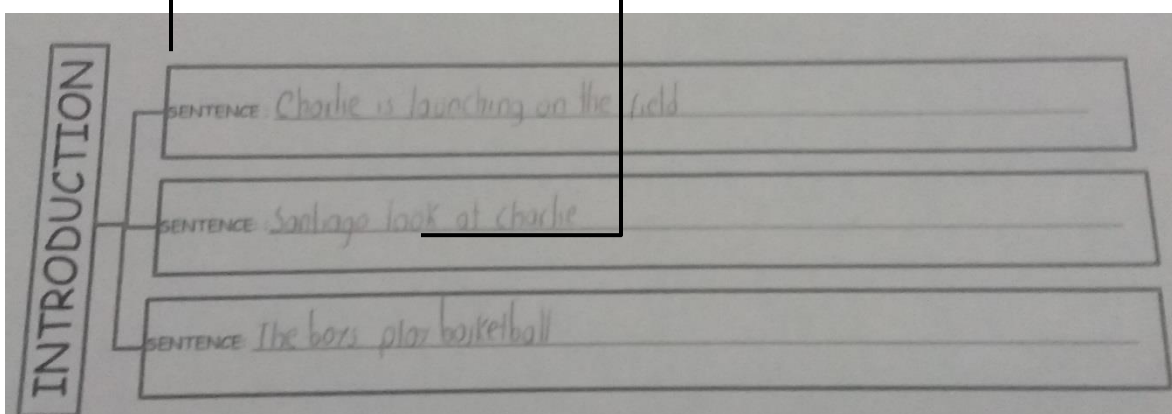 INTRODUCTION
SENTENCE: Charlie is launching on the field
SENTENCE: Santiago look at charlie
SENTENCE: The boys play basketball